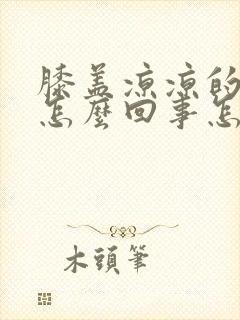 膝盖凉凉的
怎麼回事怎
木頭筆